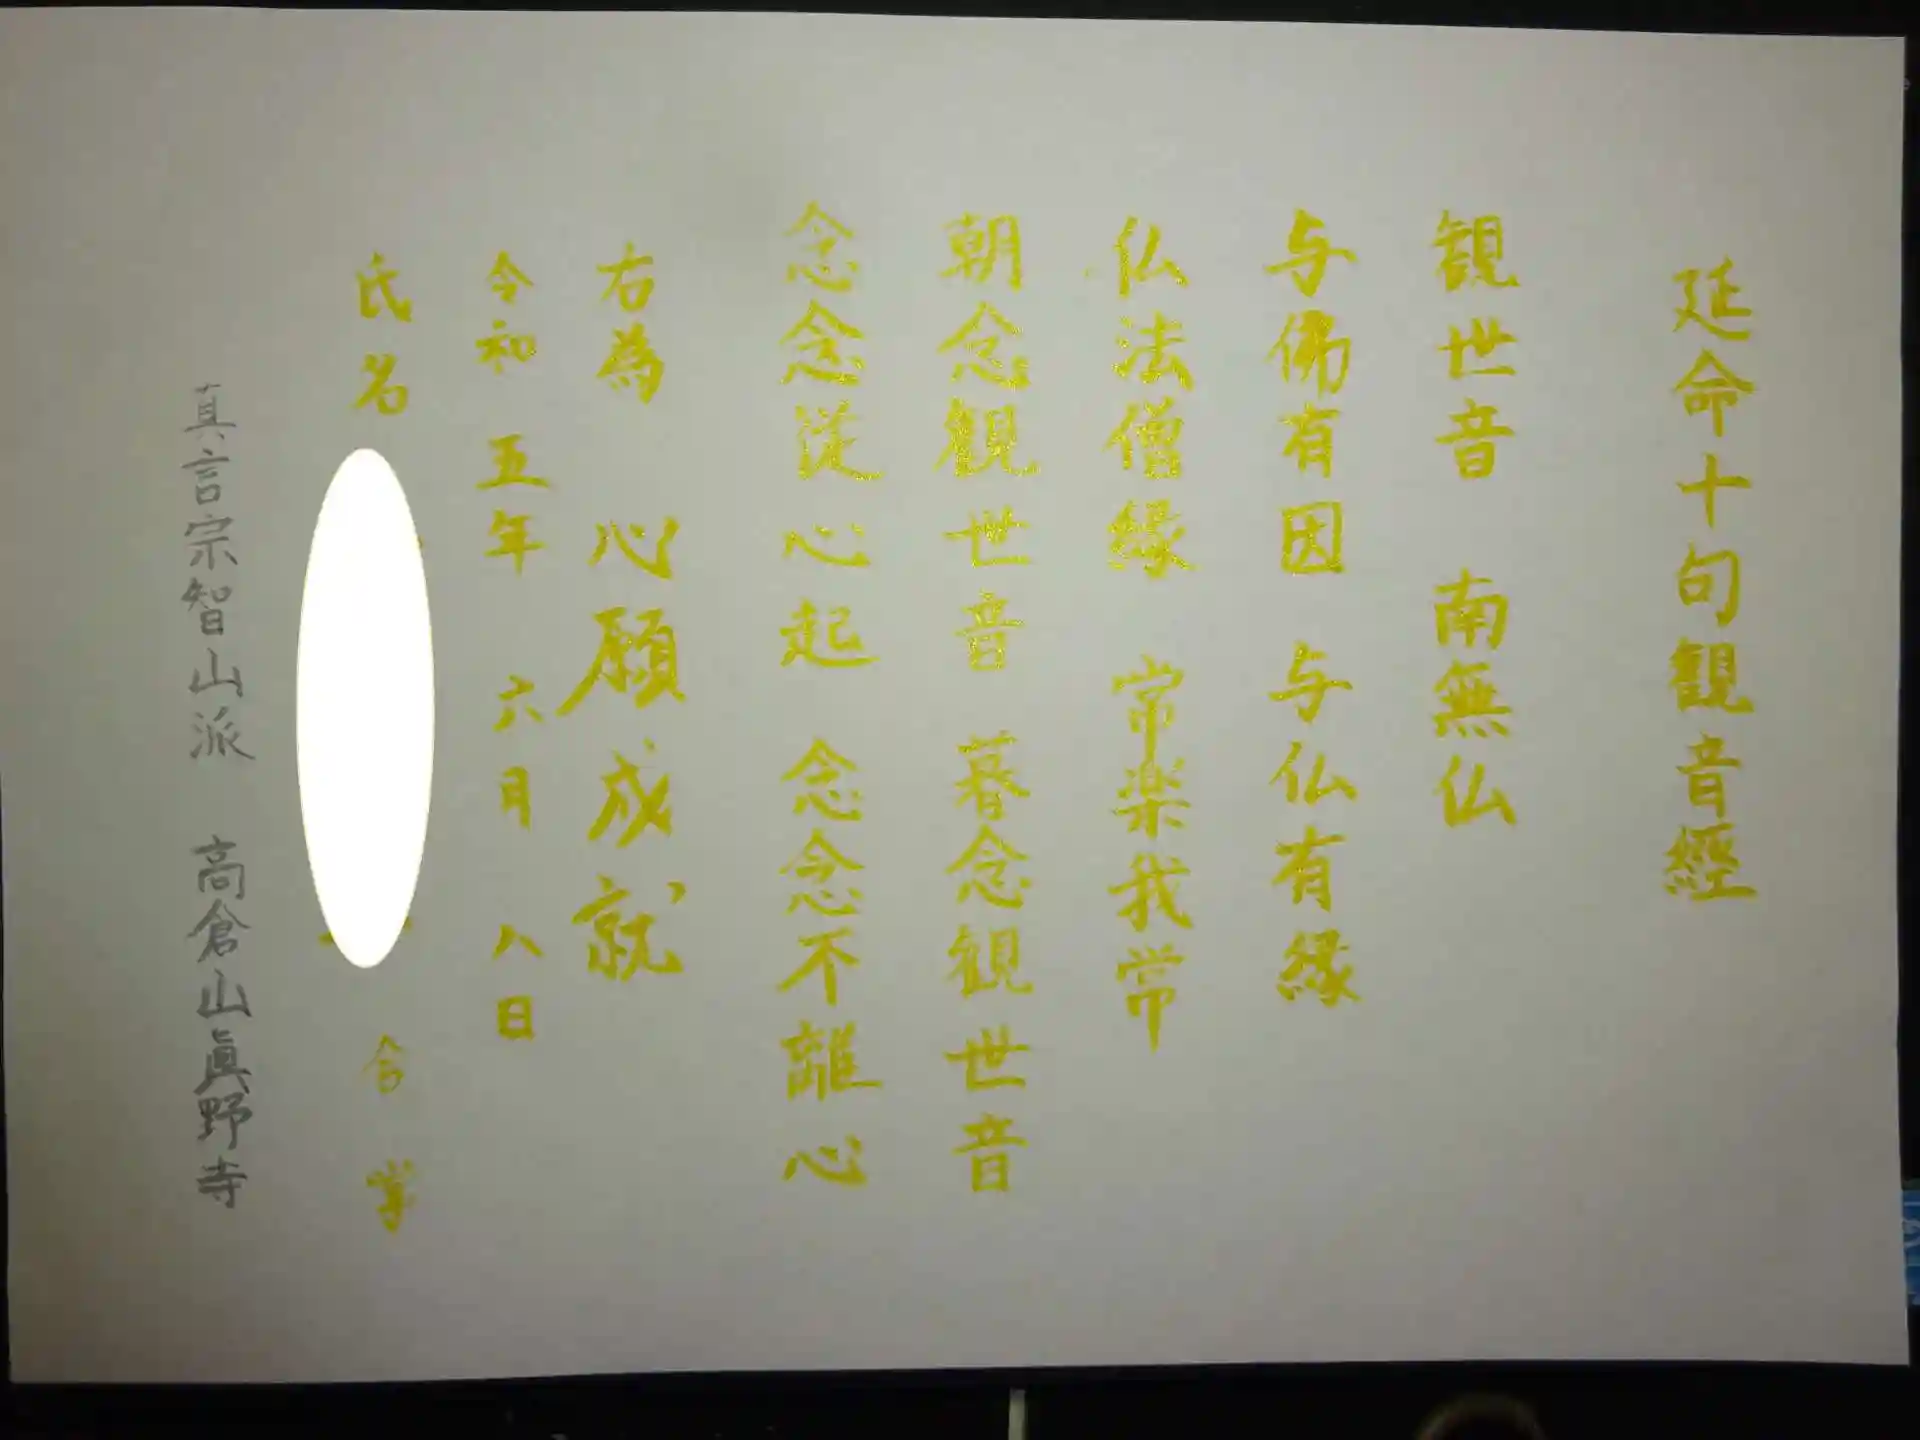 延命十句観音經
観世音　南無仏
与佛有因　与仏有縁
仏法僧縁　常楽我常
朝念観世音　暮念観世音
念念従心起　念念不離心
右為　心願成就
令和五年　六月　八日
氏名　合掌
真言宗智山派　高倉山眞野寺